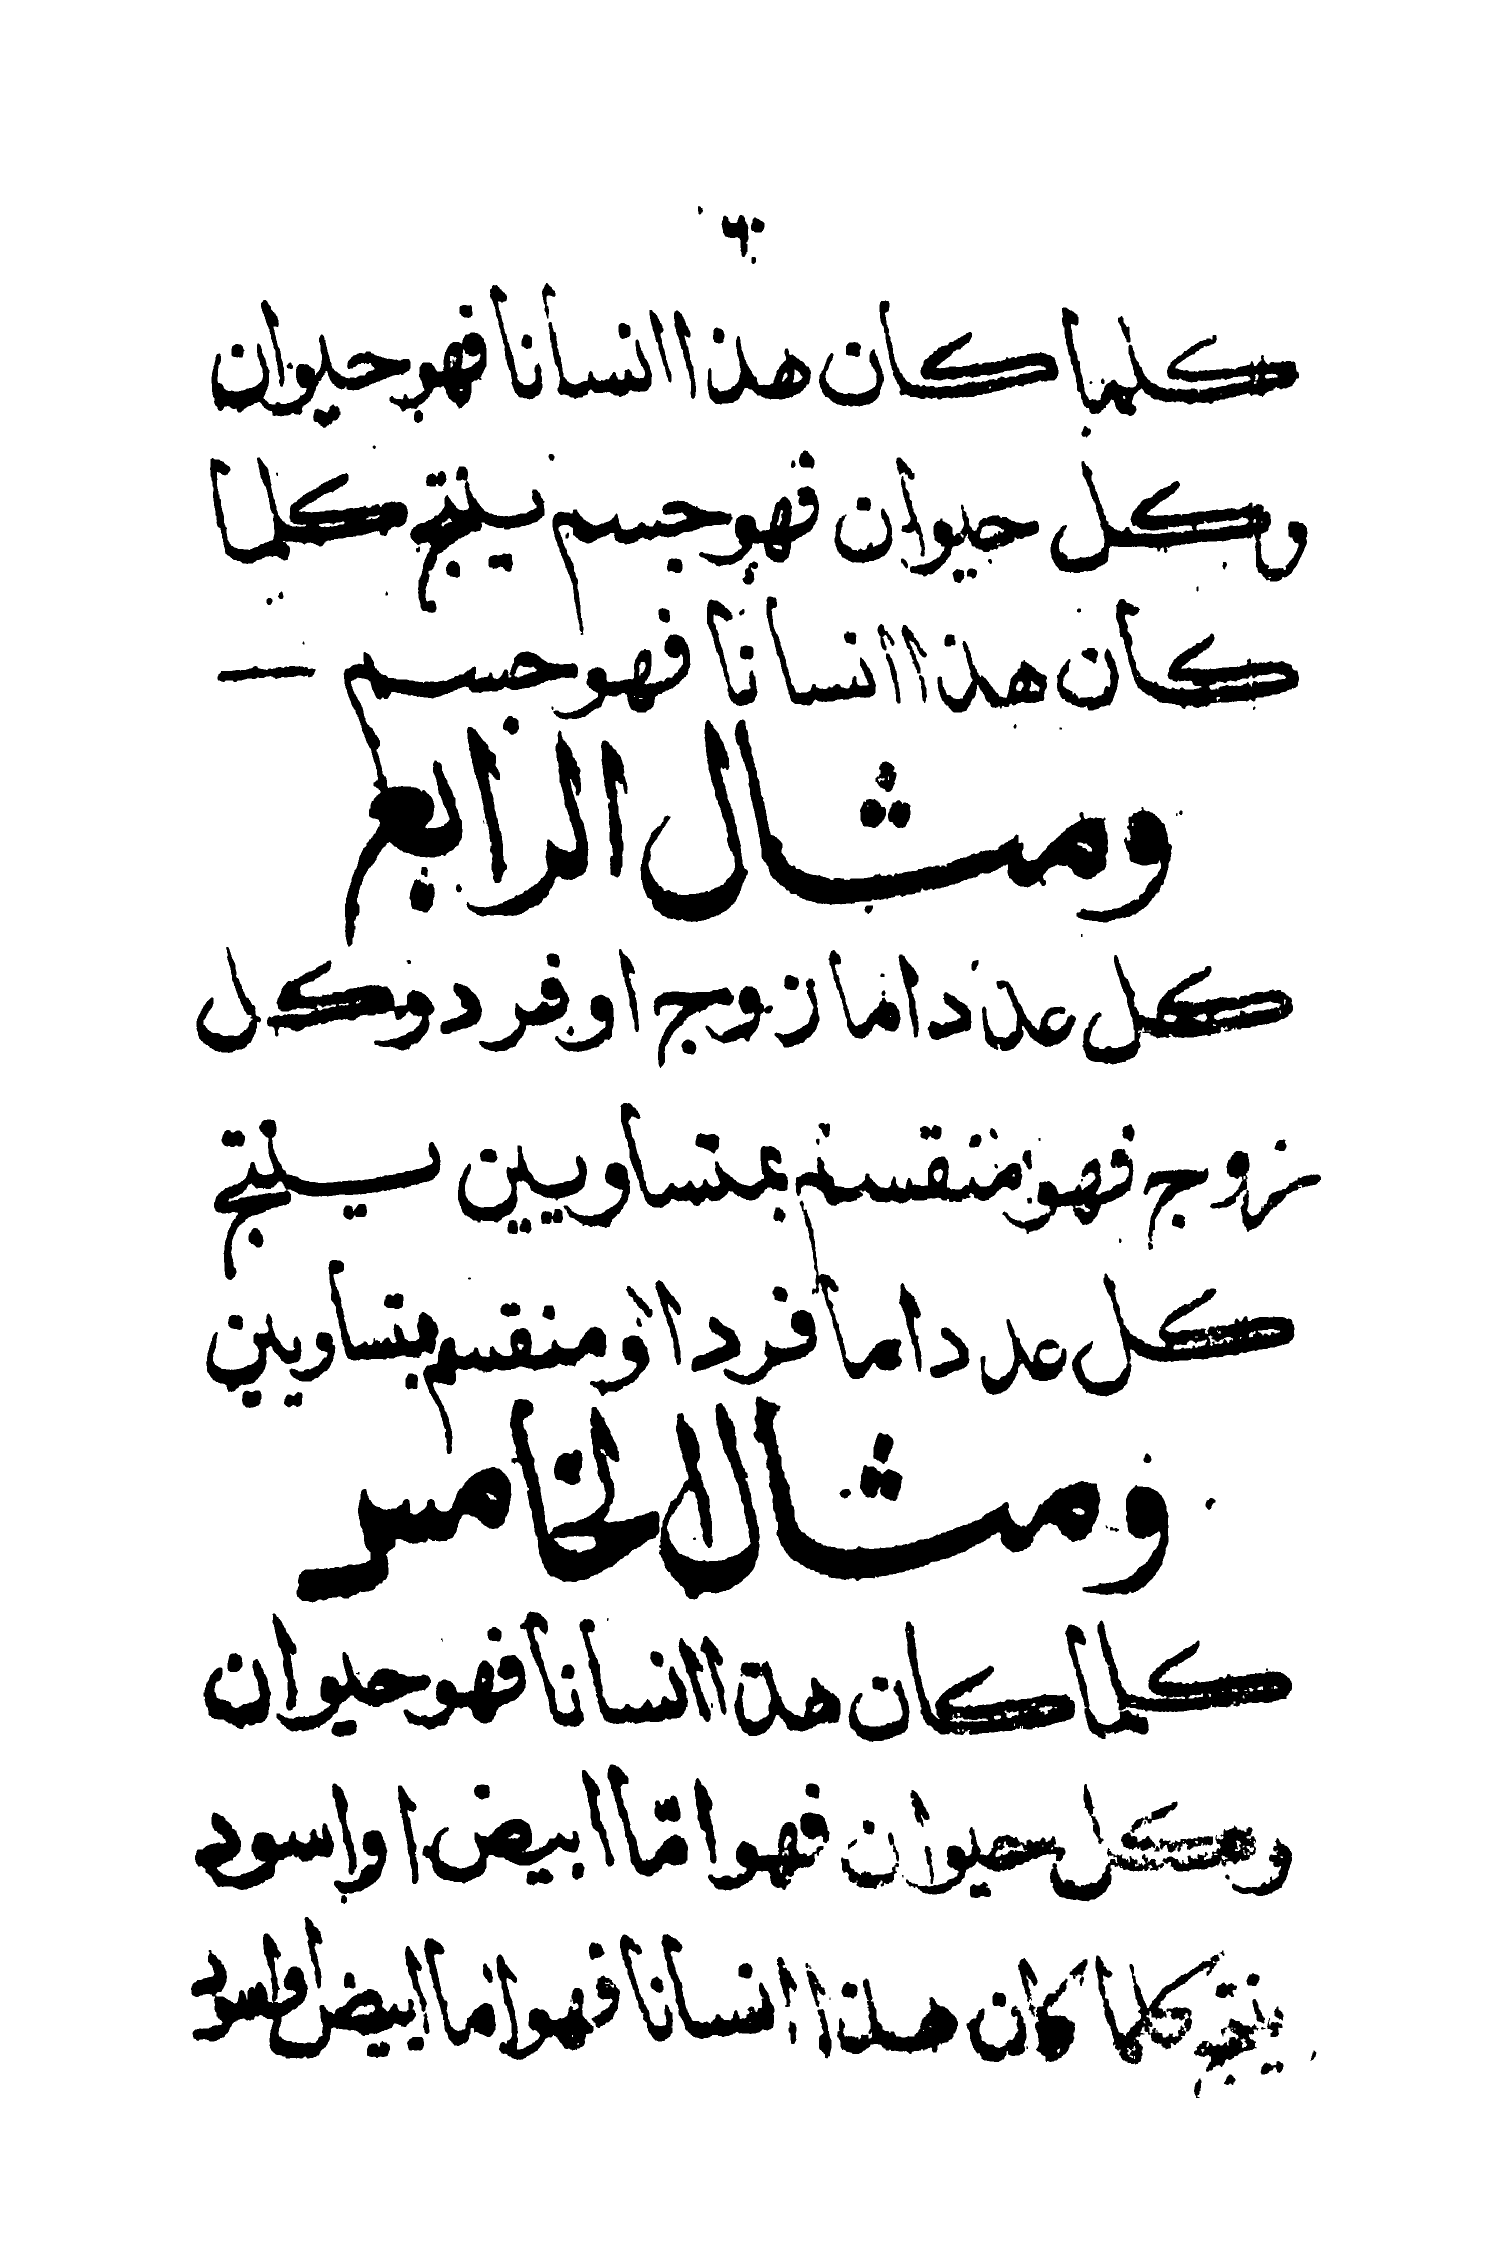 ٦٠
كلما كان هذا انسانا فهو حيوان
وكل حيوان فهو جسم ينتج كلما
كان هذا انسانا فهو جسم —
ومثال الرابع
كل عدد اما زوج او فرد وكل
زوج فهو منقسم بمتساويين ينتج
كل عدد اما فرد او منقسم بمتساويين
ومثال الخامس
كلما كان هذا انسانا فهو حيوان
وكل حيوان فهو امّا ابيض او اسود
ينتج كلما كان هذا انسانا فهو اما ابيض او اسود